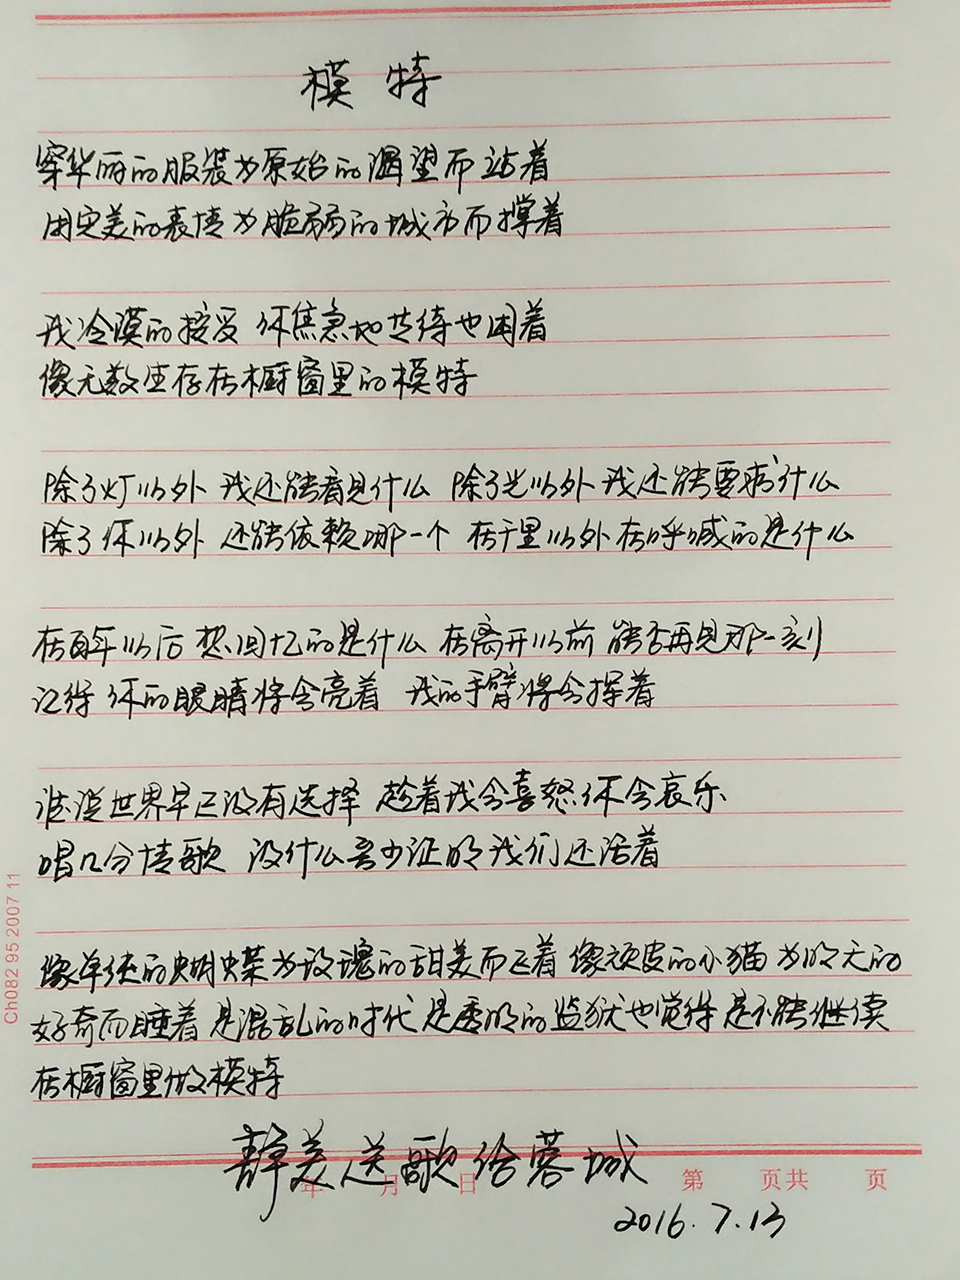 模特
穿华丽的服装为原始的渴望而站着
用完美的表情为脆弱的城市而撑着
我冷漠的接受 你焦急地等待也困着
像无数生存在橱窗里的模特
除了灯以外 我还能看见什么 除了光以外 我还能要求什么
除了你以外 还能依赖哪一个 在千里以外 在呼喊的是什么
在醉以后 想回忆的是什么 在离开以前 能否再见那一刻
记得 你的眼睛将会亮着 我的手臂将会挥着
谁说世界早已没有选择 趁着我会喜怒 你会哀乐
唱几分情歌 没什么至少证明我们还活着
像单纯的蝴蝶为玫瑰的甜美而飞着 像顽皮的小猫为明天的
好奇而睡着 是混乱的时代 是透明的监狱也觉得 是不能继续
在橱窗里做模特
静美送歌给蓉城
年 月 日 第 页共 页
2016.7.13
Ch082 95 2007 11